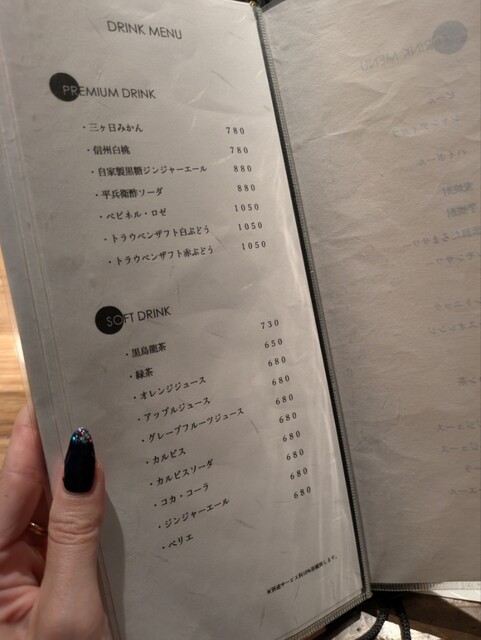 DRINK MENU
PREMIUM DRINK
・三ヶ日みかん 780
・信州白桃 780
・自家製黒糖ジンジャーエール 880
・平兵衛酢ソーダ 880
・ペピネル・ロゼ 1050
・トラウベンザフト白ぶどう 1050
・トラウベンザフト赤ぶどう 1050
SOFT DRINK
・黒烏龍茶 730
・緑茶 650
・オレンジジュース 680
・アップルジュース 680
・グレープフルーツジュース 680
・カルピス 680
・カルピスソーダ 680
・コカ・コーラ 680
・ジンジャーエール 680
・ペリエ 680